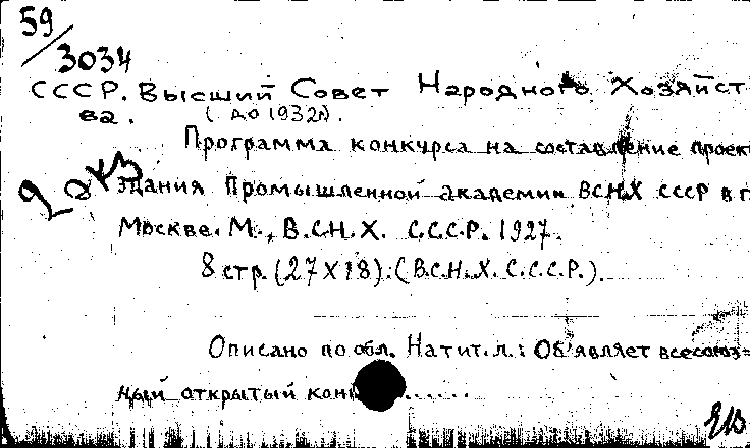 59/3034
СССР. Высший Совет Народного Хозяйст
ва. (до 1932г).
Программа конкурса на составление проек
2 экз
здания Промышленной академии ВСНХ СССР в г
Москве. М., В.С.Н.Х. С.С.С.Р. 1927.
8 стр. (27х18). (В.С.Н.Х. С.С.С.Р.).
Описано по обл. На тит. л.: Объявляет всесоюз-
ный открытый кон.......